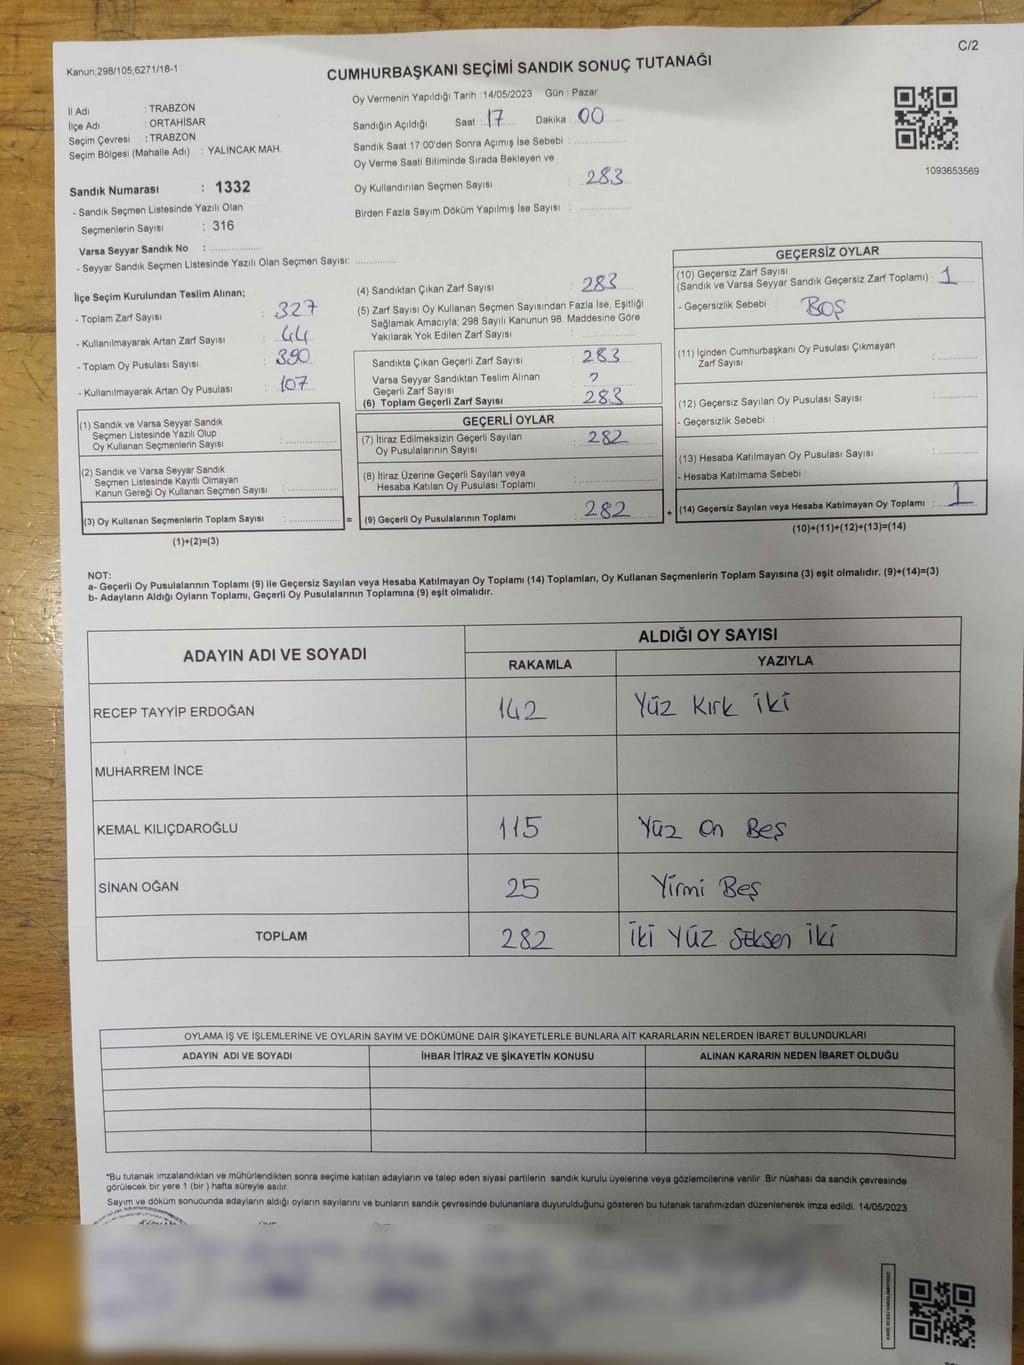 C/2
Kanun;298/105;6271/18-1
CUMHURBAŞKANI SEÇİMİ SANDIK SONUÇ TUTANAĞI
İl Adı : TRABZON
İlçe Adı : ORTAHİSAR
Seçim Çevresi : TRABZON
Seçim Bölgesi (Mahalle Adı) : YALINCAK MAH.
Sandık Numarası : 1332
- Sandık Seçmen Listesinde Yazılı Olan
Seçmenlerin Sayısı : 316
Varsa Seyyar Sandık No : ..................
- Seyyar Sandık Seçmen Listesinde Yazılı Olan Seçmen Sayısı: .............
Oy Vermenin Yapıldığı Tarih :14/05/2023 Gün : Pazar
Sandığın Açıldığı Saat : 17 Dakika : 00
Sandık Saat 17:00'den Sonra Açımış İse Sebebi : ..................
Oy Verme Saati Bitiminde Sırada Bekleyen ve
Oy Kullandırılan Seçmen Sayısı : 283
Birden Fazla Sayım Döküm Yapılmış İse Sayısı : ..................
1093653569
İlçe Seçim Kurulundan Teslim Alınan;
- Toplam Zarf Sayısı : 327
- Kullanılmayarak Artan Zarf Sayısı : 44
- Toplam Oy Pusulası Sayısı : 390
- Kullanılmayarak Artan Oy Pusulası : 107
(1) Sandık ve Varsa Seyyar Sandık
Seçmen Listesinde Yazılı Olup
Oy Kullanan Seçmenlerin Sayısı : ..................
(2) Sandık ve Varsa Seyyar Sandık
Seçmen Listesinde Kayıtlı Olmayan
Kanun Gereği Oy Kullanan Seçmen Sayısı : ..................
(3) Oy Kullanan Seçmenlerin Toplam Sayısı : .................. =
(1)+(2)=(3)
(4) Sandıktan Çıkan Zarf Sayısı : 283
(5) Zarf Sayısı Oy Kullanan Seçmen Sayısından Fazla İse, Eşitliği
Sağlamak Amacıyla; 298 Sayılı Kanunun 98. Maddesine Göre
Yakılarak Yok Edilen Zarf Sayısı : ..................
Sandıkta Çıkan Geçerli Zarf Sayısı : 283
Varsa Seyyar Sandıktan Teslim Alınan
Geçerli Zarf Sayısı :
(6) Toplam Geçerli Zarf Sayısı : 283
GEÇERLİ OYLAR
(7) İtiraz Edilmeksizin Geçerli Sayılan
Oy Pusulasının Sayısı : 282
(8) İtiraz Üzerine Geçerli Sayılan veya
Hesaba Katılan Oy Pusulası Toplamı : ..................
(9) Geçerli Oy Pusulalarının Toplamı : 282 +
GEÇERSİZ OYLAR
(10) Geçersiz Zarf Sayısı
(Sandık ve Varsa Seyyar Sandık Geçersiz Zarf Toplamı) : 1
- Geçersizlik Sebebi : BOŞ
(11) İçinden Cumhurbaşkanı Oy Pusulası Çıkmayan
Zarf Sayısı : .............
(12) Geçersiz Sayılan Oy Pusulası Sayısı : .............
- Geçersizlik Sebebi :
(13) Hesaba Katılmayan Oy Pusulası Sayısı : .............
- Hesaba Katılmama Sebebi :
(14) Geçersiz Sayılan veya Hesaba Katılmayan Oy Toplamı : 1
(10)+(11)+(12)+(13)=(14)
NOT:
a- Geçerli Oy Pusulalarının Toplamı (9) ile Geçersiz Sayılan veya Hesaba Katılmayan Oy Toplamı (14) Toplamları, Oy Kullanan Seçmenlerin Toplam Sayısına (3) eşit olmalıdır. (9)+(14)=(3)
b- Adayların Aldığı Oyların Toplamı, Geçerli Oy Pusulalarının Toplamına (9) eşit olmalıdır.
ADAYIN ADI VE SOYADI
ALDIĞI OY SAYISI
RAKAMLA YAZIYLA
RECEP TAYYİP ERDOĞAN 142 Yüz Kırk iki
MUHARREM İNCE
KEMAL KILIÇDAROĞLU 115 Yüz On Beş
SİNAN OĞAN 25 Yirmi Beş
TOPLAM 282 İki Yüz Seksen İki
OYLAMA İŞ VE İŞLEMLERİNE VE OYLARIN SAYIM VE DÖKÜMÜNE DAİR ŞİKAYETLERLE BUNLARA AİT KARARLARIN NELERDEN İBARET BULUNDUKLARI
ADAYIN ADI VE SOYADI İHBAR İTİRAZ VE ŞİKAYETİN KONUSU ALINAN KARARIN NEDEN İBARET OLDUĞU
*Bu tutanak imzalandıktan ve mühürlendikten sonra seçime katılan adayların ve talep eden siyasi partilerin sandık kurulu üyelerine veya gözlemcilerine verilir .Bir nüshası da sandık çevresinde
görülecek bir yere 1 (bir ) hafta süreyle asılır.
Sayım ve döküm sonucunda adayların aldığı oyların sayılarını ve bunların sandık çevresinde bulunanlara duyurulduğunu gösteren bu tutanak tarafımızdan düzenlenerek imza edildi. 14/05/2023